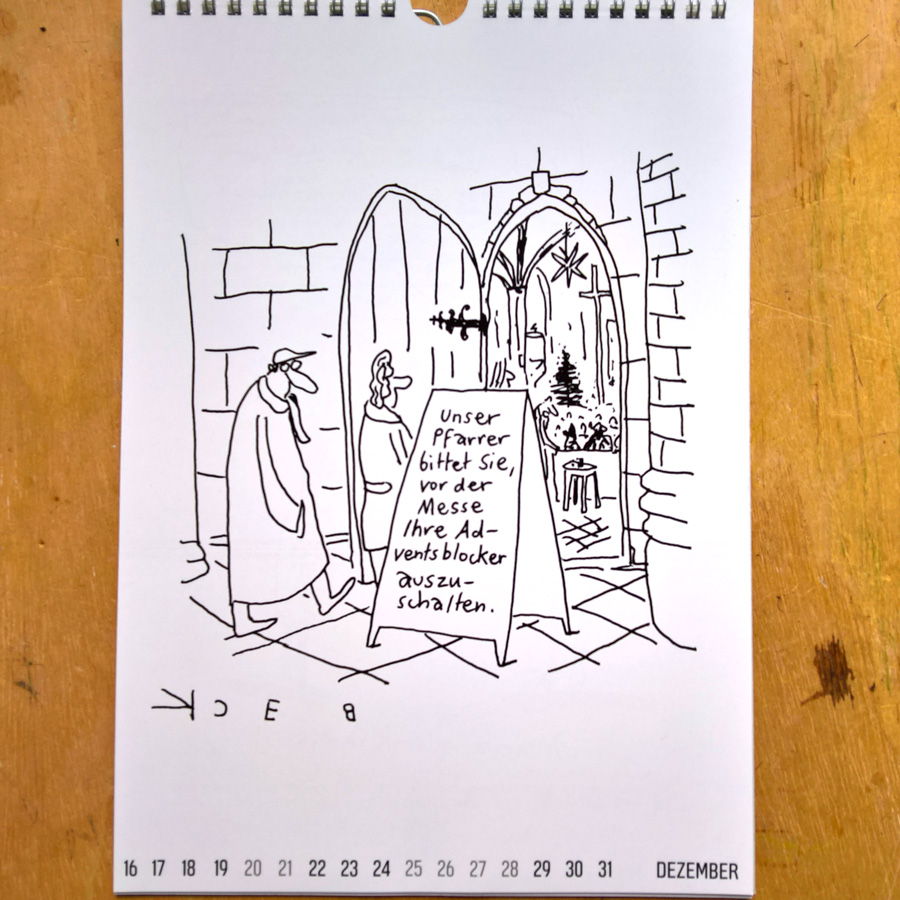 unser
Pfarrer
bittet Sie,
vor der
Messe
Ihre Ad-
ventsblocker
auszu-
schalten.
KCEB
16 17 18 19 20 21 22 23 24 25 26 27 28 29 30 31 DEZEMBER